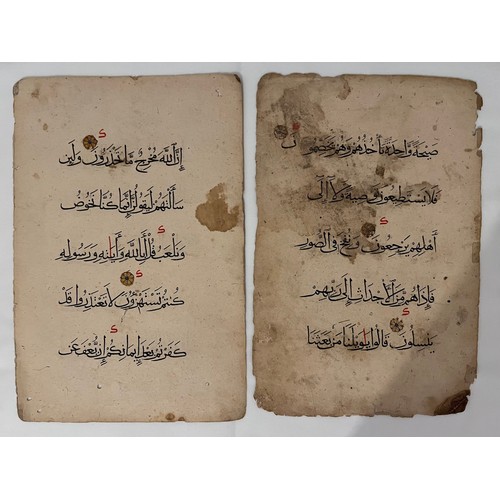 صيحة واحدة تأخذهم وهم يخصمون
فلا يستطيعون توصية ولا إلى
أهلهم يرجعون ونفخ في الصور
فإذا هم من الأجداث إلى ربهم
ينسلون قالوا يويلنا من بعثنا
إن الله مخرج ما تحذرون ولئن
سألتهم ليقولن إنما كنا نخوض
ونلعب قل أبالله وآيته ورسوله
كنتم تستهزءون لا تعتذروا قد
كفرتم بعد إيمانكم إن نعف عن